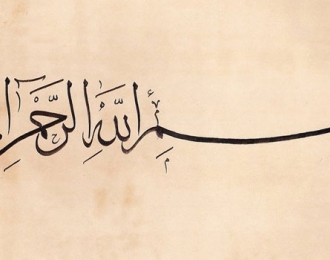 سم الله الرحمن ا